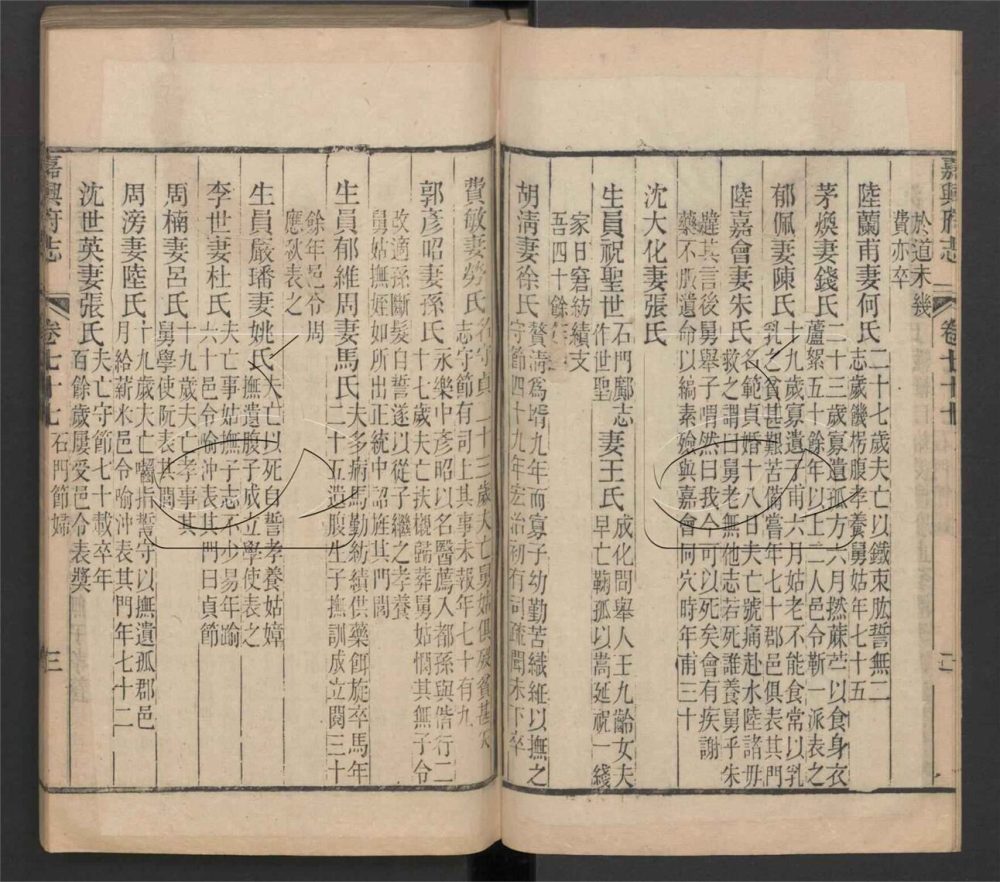 嘉興府志
卷七十七
二
於道未幾
費亦卒
陸蘭甫妻何氏
二十七歲夫亡以鐵束肱誓無二
志歲饑枵腹孝養舅姑年七十五
茅煥妻錢氏
二十三歲寡遺孤方六月撚蔴苧以食身衣
蘆絮五十餘年以上二人邑令靳一派表之
郁佩妻陳氏
十九歲寡遺子甫六月姑老不能食常以乳
乳之貧甚艱苦備嘗年七十郡邑俱表其門
陸嘉會妻朱氏
名範貞婚十八日夫亡號痛赴水陸諸毋
救之謂曰舅老無他志若死誰養舅乎朱
韙其言後舅舉子喟然曰我今可以死矣會有疾謝
藥不服遺命以縞素殮與嘉會同穴時年甫三十
沈大化妻張氏
石門鄺志
生員祝聖世
作世聖
妻王氏
成化間舉人王九齡女夫
早亡鞠孤以嵩延祝一綫
家日窘紡績支
吾四十餘年
胡淸妻徐氏
贅淸爲壻九年而寡子幼勤苦織紝以撫之
守節四十九年宏治初有司疏聞未下卒
費敏妻勞氏
名守貞二十三歲夫亡舅姑俱歿貧甚矢
志守節有司上其事未報年七十有九
郭彥昭妻孫氏
永樂中彥昭以名醫薦入都孫與偕行二
十七歲夫亡扶櫬歸葬舅姑憫其無子令
改適孫斷髮自誓遂以從子繼之孝養
舅姑撫姪如所出正統中詔旌其門閭
生員郁維周妻馬氏
夫多病馬勤紡績供藥餌旋卒馬年
二十五遺腹生子撫訓成立閱三十
餘年邑令周
應秋表之
生員嚴璠妻姚氏
夫亡以死自誓孝養姑嫜
撫遺腹子成立學使表之
李世妻杜氏
夫亡事姑撫子志不少易年踰
六十邑令喻沖表其門曰貞節
周楠妻呂氏
十九歲夫亡孝事其
舅學使阮表其閭
周滂妻陸氏
十九歲夫亡嚙指誓守以撫遺孤郡邑
月給薪米邑令喻沖表其門年七十二
沈世英妻張氏
夫亡守節七十載卒年
百餘歲屢受邑令表獎
石門節婦
嘉興府志
卷七十七
三